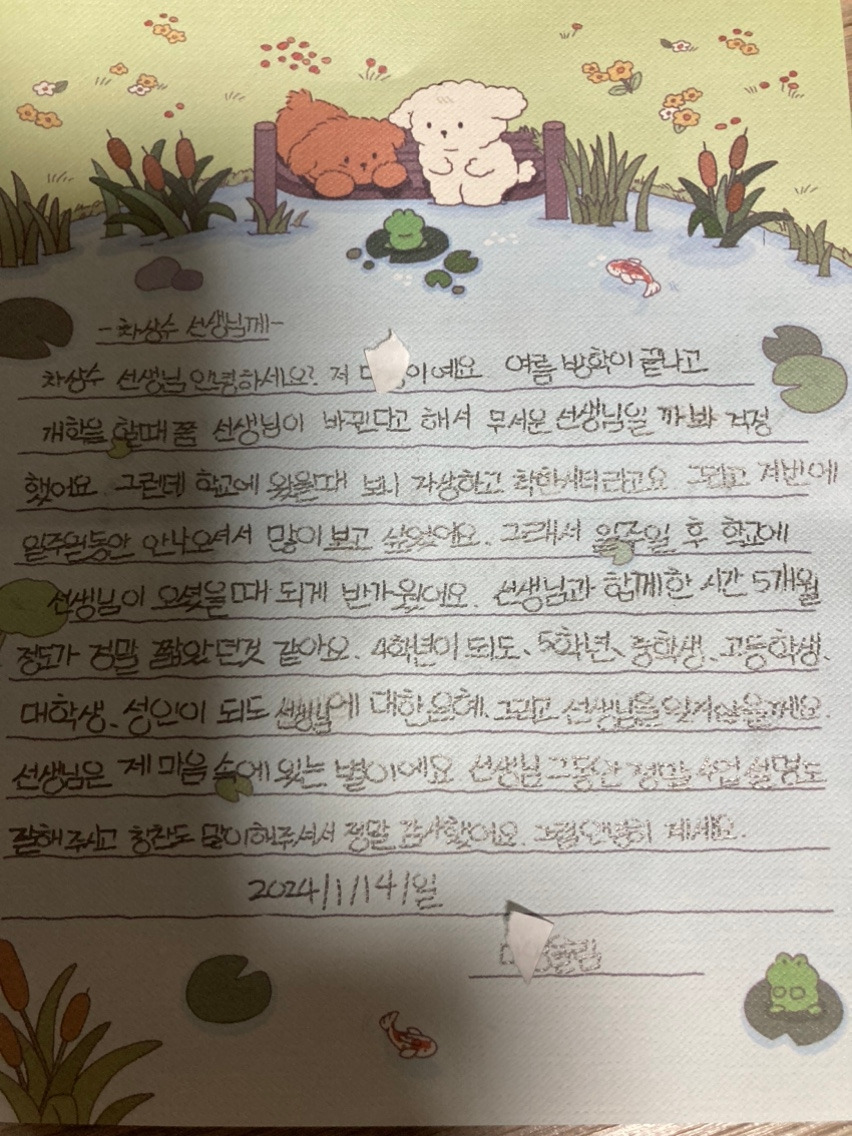 -차상수 선생님께-
차상수 선생님 안녕하세요? 저 이예요 여름 방학이 끝나고
개학을 할때쯤 선생님이 바뀐다고 해서 무서운 선생님일 까봐 걱정
했어요. 그런데 학교에 왔을때 보니 자상하고 착한시더라고요. 그리고 저번에
일주일동안 안나오셔서 많이 보고 싶었어요. 그래서 일주일 후 학교에
선생님이 오셨을때 되게 반가웠어요. 선생님과 함께한 시간 5개월
정도가 정말 짧았던것 같아요. 4학년이 되도、5학년、중학생、고등학생、
대학생、성인이 되도 선생님에 대한 은혜、그리고 선생님을 잊지않을게요.
선생님은 제 마음 속에 있는 별이에요 선생님 그동안 정말 수업 설명도
잘해 주시고 칭찬도 많이해주셔서 정말 감사했어요. 그럼 안녕히 계세요.
2024/1/14/일
올림